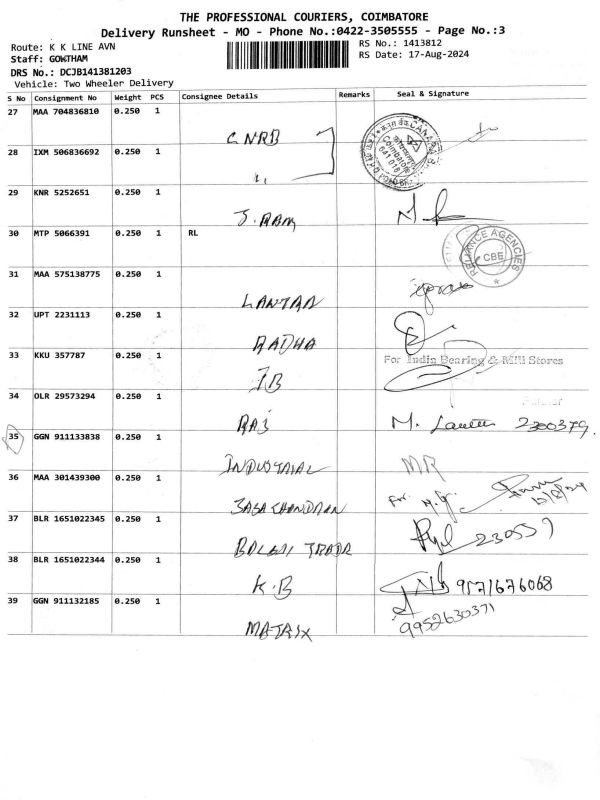 THE PROFESSIONAL COURIERS, COIMBATORE
Delivery Runsheet - MO - Phone No.:0422-3505555 - Page No.:3
Route: K K LINE AVN
RS No.: 1413812
Staff: GOWTHAM
RS Date: 17-Aug-2024
DRS No.: DCJB141381203
Vehicle: Two Wheeler Delivery
S No Consignment No Weight PCS Consignee Details Remarks Seal & Signature
27 MAA 704836810 0.250 1
CNRB
28 IXM 506836692 0.250 1
29 KNR 5252651 0.250 1
J. RAM
30 MTP 5066391 0.250 1 RL
RELIANCE AGENCIES
CBE
31 MAA 575138775 0.250 1
32 UPT 2231113 0.250 1
RADHA
33 KKU 357787 0.250 1
For Indin Bearing & Mill Stores
IB
34 OLR 29573294 0.250 1
RAJ M. 2300379
35 GGN 911133838 0.250 1
INDUSTRIAL MR
36 MAA 301439300 0.250 1
For
37 BLR 1651022345 0.250 1
230559
38 BLR 1651022344 0.250 1
K.B 9571676068
39 GGN 911132185 0.250 1
9952630371
MATRIX